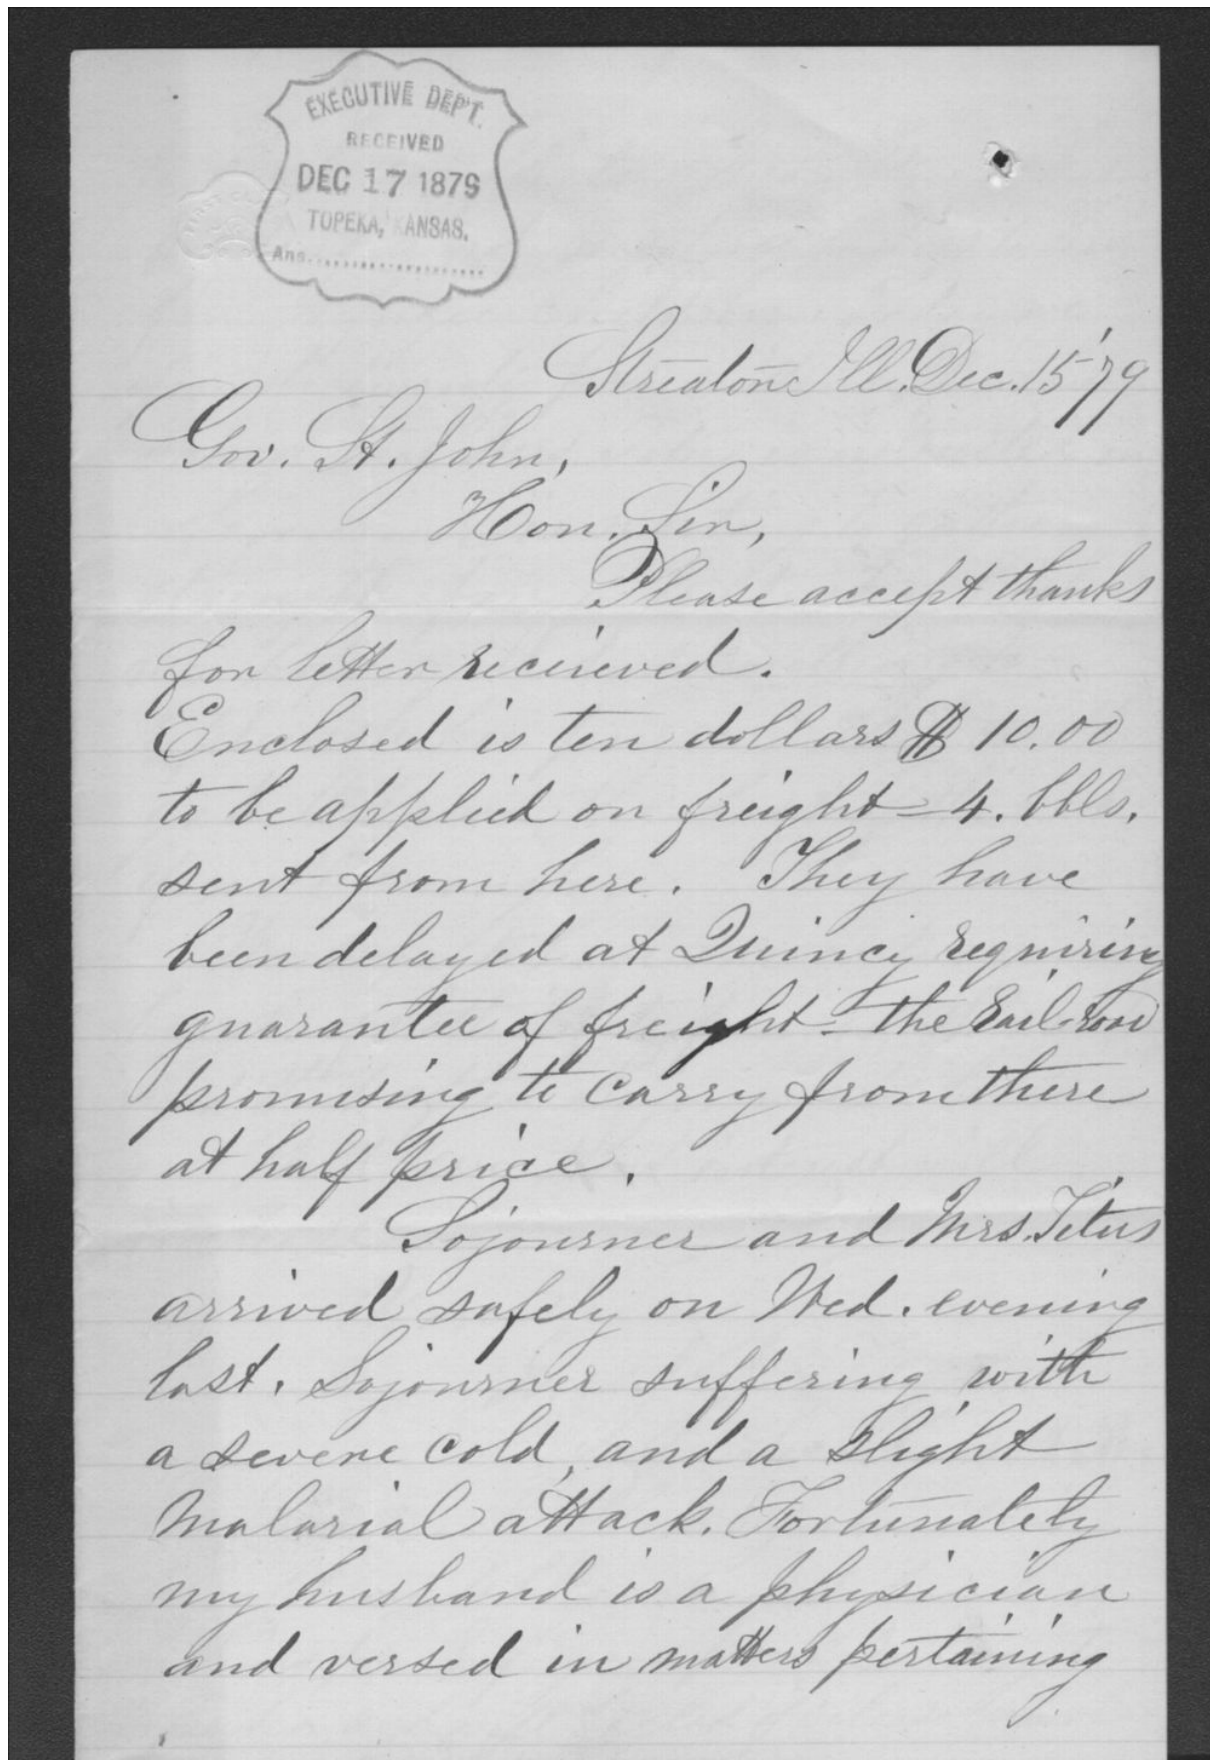 EXECUTIVE DEP'T.
RECEIVED
DEC 17 1879
TOPEKA, KANSAS.
Ans.....................
Streator Ill. Dec. 15 '79
Gov. St. John,
Hon. Sir,
Please accept thanks
for letter recieved.
Enclosed is ten dollars $10.00
to be applied on freight – 4. bbls.
sent from here. They have
been delayed at Quincy requiring
guarantee of freight – the Rail-road
promising to carry from there
at half price.
Sojourner and Mrs. Titus
arrived safely on Wed. evening
last. Sojourner suffering with
a severe cold, and a slight
Malarial attack. Fortunately
my husband is a physician
and versed in matters pertaining